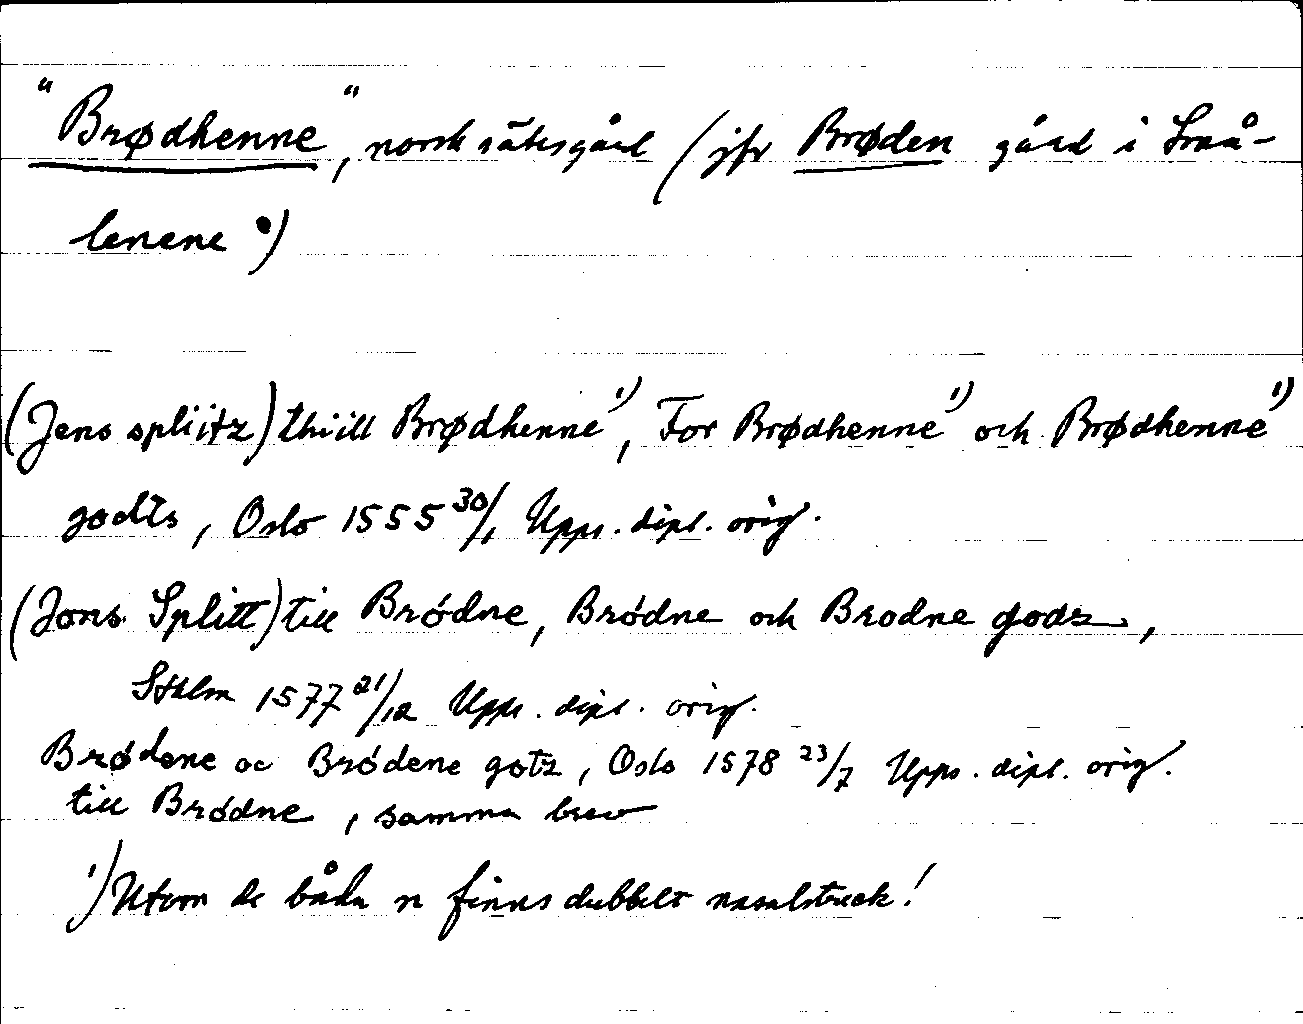 "Brødhenne", norsk sätesgård (jfr Brøden gård i Små-
lenene )
(Jens spliitz) thiill Brødhenne¹), For Brødhenne¹) och Brødhenne¹)
godts, Oslo 1555 30/1 Upps. dipl. orig.
(Jons Splitt) till Brödne, Brödne och Brodne godz,
Sthlm 1577 21/12 Upps. dipl. orig.
Brødene oc Brödene gotz, Oslo 1578 23/7 Upps. dipl. orig.
till Brödne, samma brev
¹) Utom de båda n finns dubbelt nasalstreck!